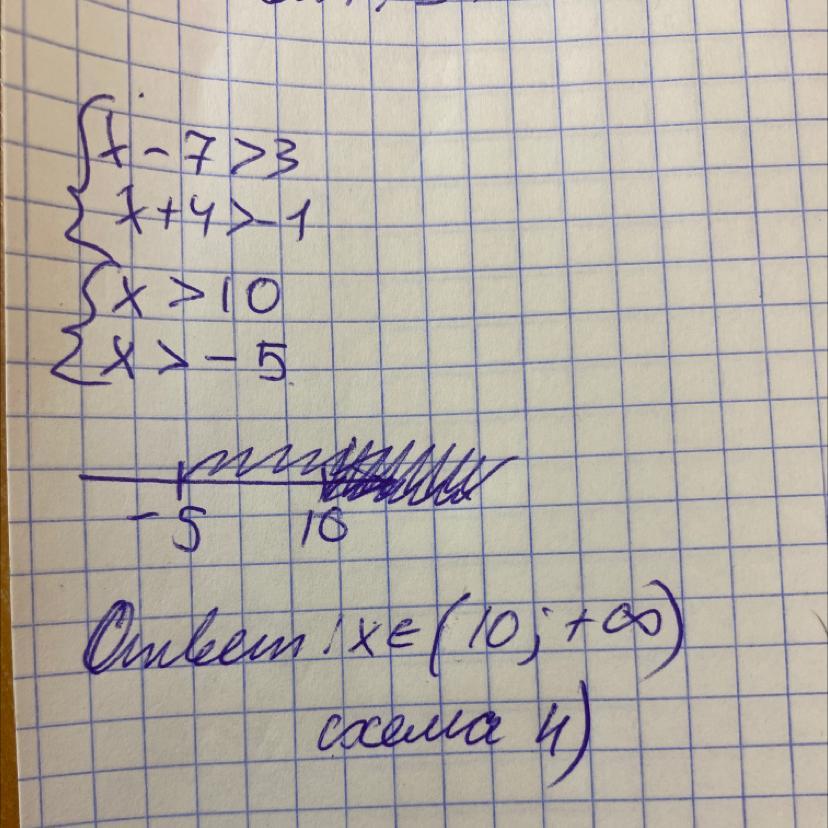 x - 7 > 3
x + 4 > -1
x > 10
x > - 5
- 5 10
Ответ: x ∈ (10; +∞)
схема 4)